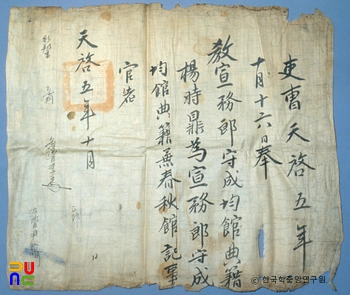 吏曹天啓五年
十月十六日奉
教宣務郎守成均館典籍
楊時鼎爲宣務郎守成
均館典籍兼春秋館記事
官者
天啓五年十月
©한국학중앙연구원